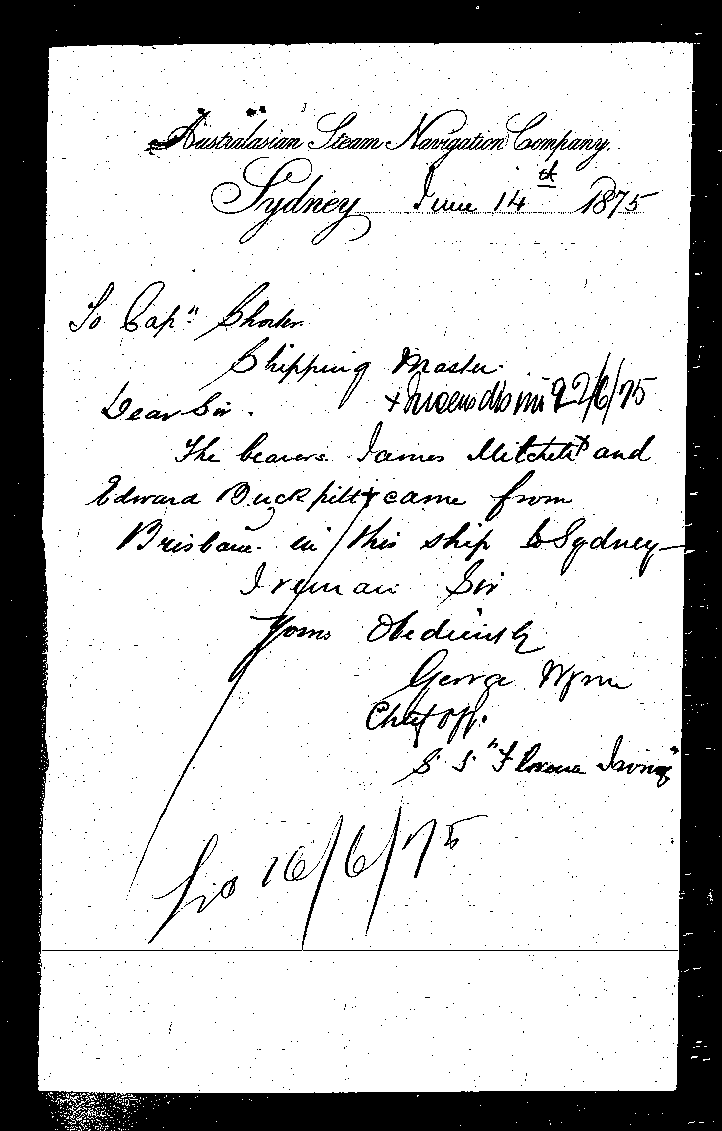 Australasian Steam Navigation Company.
Sydney June 14th 1875
To Capn Shorter
Shipping Master.
Dear Sir. 22/6/75
The bearers James Mitchell + and
Edward Buckpitt + came from
Brisbane in this ship to Sydney
I remain Sir
Yours Obediently
George Wynn
Chief Off.
S. S. "Florence Irving"
16/6/75